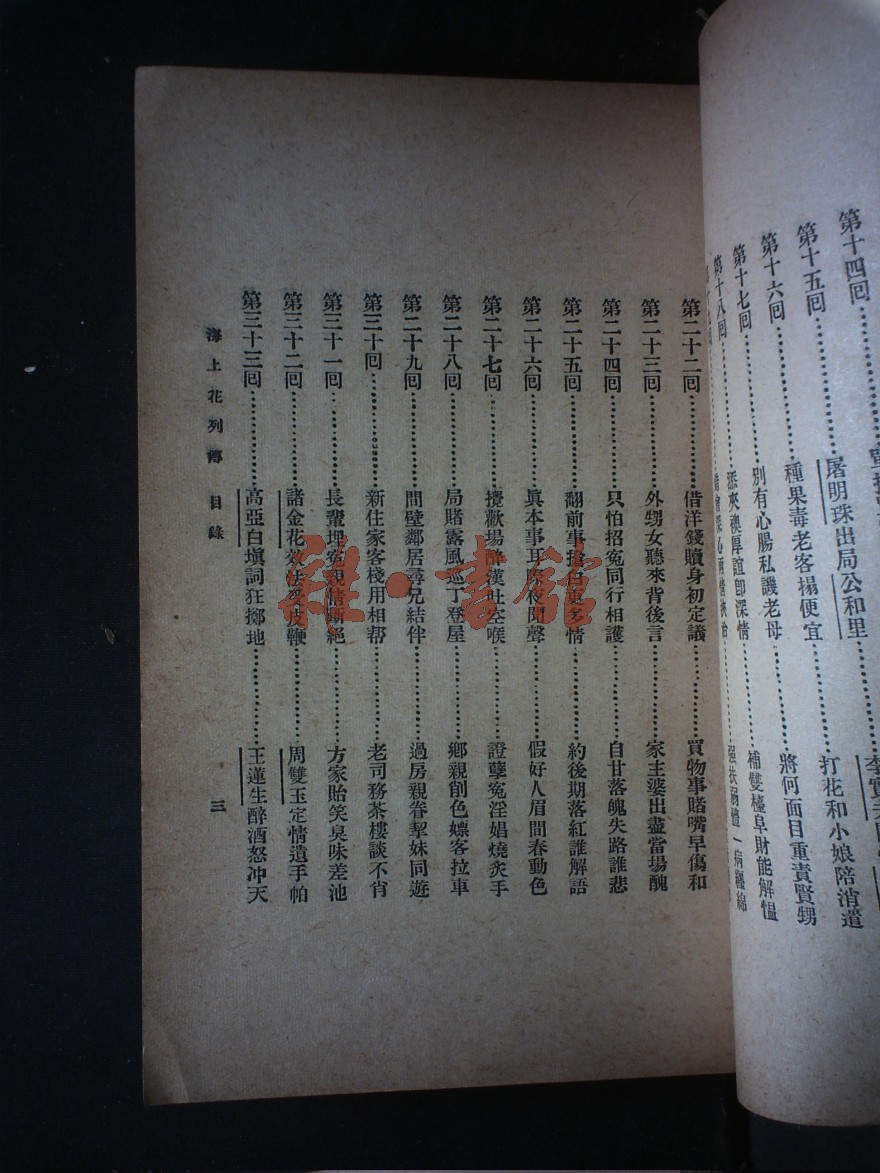 第十四回
第十五回 屠明珠出局公和里
第十六回 種果毒老客搨便宜 打花和小娘陪消遣
第十七回 別有心腸私譏老母 將何面目重責賢甥
第十八回 添夾襖厚誼卽深情 補雙檯阜財能解慍
第二十二回 借洋錢贖身初定議 買物事賭嘴早傷和
第二十三回 外甥女聽來背後言 家主婆出盡當場醜
第二十四回 只怕招冤同行相護 自甘落魄失路誰悲
第二十五回 翻前事搶白更多情 約後期落紅誰解語
第二十六回 眞本事耳際夜聞聲 假好人眉間春動色
第二十七回 攪歡場醉漢吐空喉 證孽冤淫娼燒炙手
第二十八回 局賭露風巡丁登屋 鄉親削色嫖客拉車
第二十九回 間壁鄰居尋兄結伴 過房親眷挈妹同遊
第三十回 新住家客棧用相帮 老司務茶樓談不肖
第三十一回 長輩埋冤親情斷絕 方家貽笑臭味差池
第三十二回 諸金花效法受皮鞭 周雙玉定情遺手帕
第三十三回 高亞白塡詞狂擲地 王蓮生醉酒怒冲天
海上花列傳 目錄
三